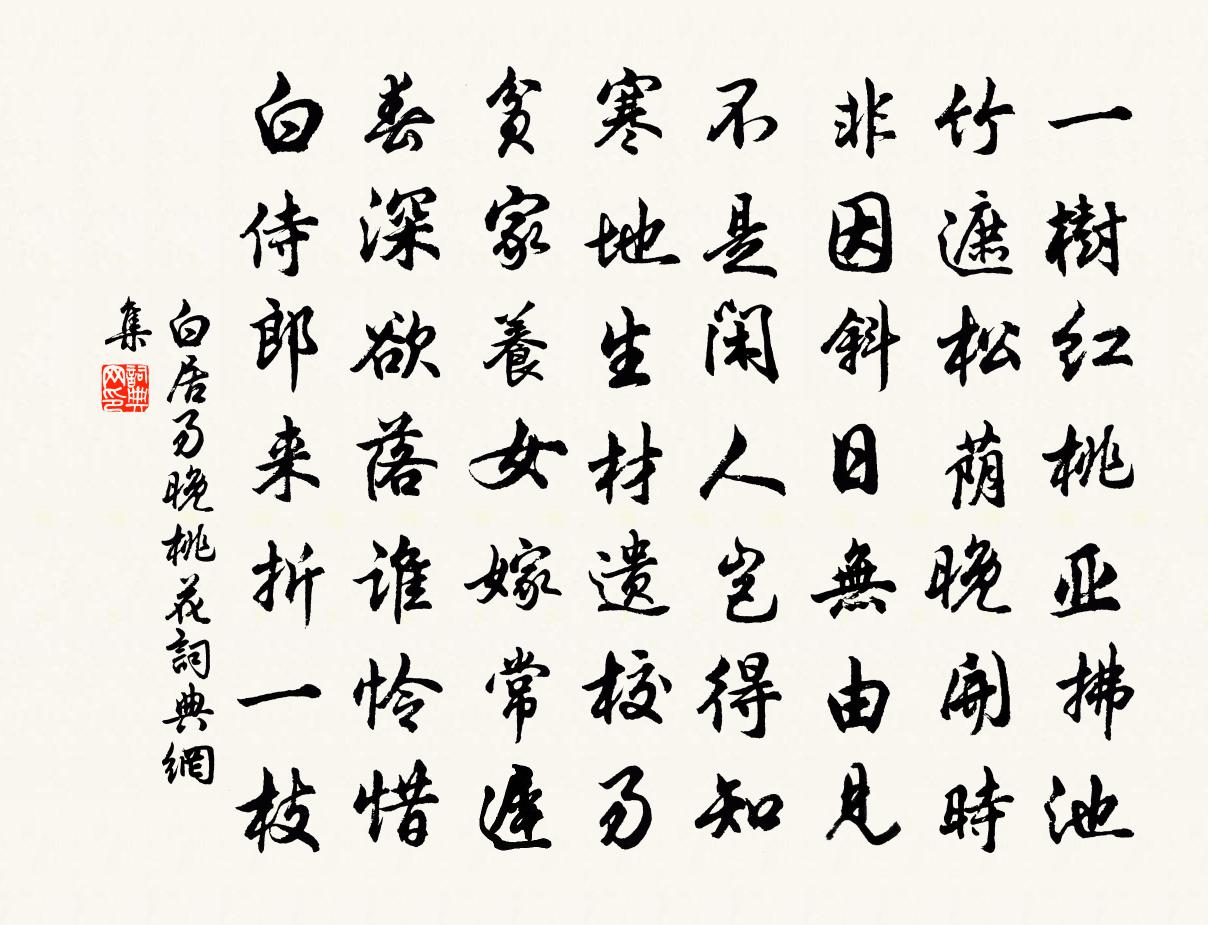 一樹红桃亚拂池
竹遮松荫晚開時
非因斜日無由見
不是閑人岂得知
寒地生材遗校易
貧家養女嫁常遲
春深欲落誰怜惜
白侍郎来折一枝
白居易晚桃花詞典網
集
詞典
网印